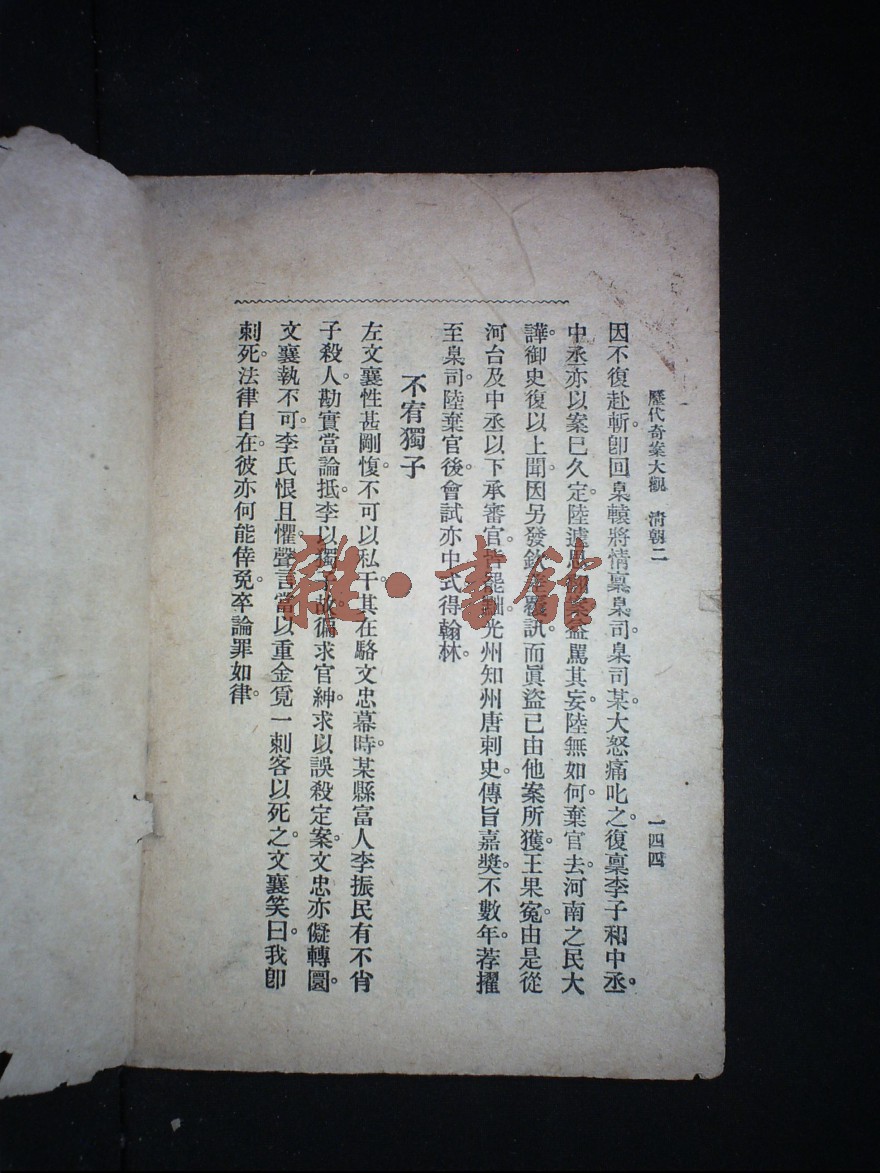 歷代奇案大觀 清朝二 一四四
因不復赴斬。卽回臬轅將情稟臬司。臬司某大怒痛叱之。復稟李子和中丞。
中丞亦以案巳久定。陸遽 罵其妄。陸無如何。棄官去。河南之民大
譁。御史復以上聞。因另發欽 覆訊。而眞盜已由他案所獲。王果寃。由是從
河台及中丞以下承審官。皆罷 光州知州唐刺史。傳旨嘉獎。不數年。荐擢
至臬司。陸棄官後。會試亦中式得翰林。
不宥獨子
左文襄性甚剛愎。不可以私干。其在駱文忠幕時。某縣富人李振民有不肖
子殺人。勘實當論抵。李以獨子故。徧求官紳。求以誤殺定案。文忠亦儗轉圜。
文襄執不可。李氏恨且懼。聲言當以重金覓一刺客以死之。文襄笑曰。我卽
刺死。法律自在。彼亦何能倖免。卒論罪如律。
雜·書館